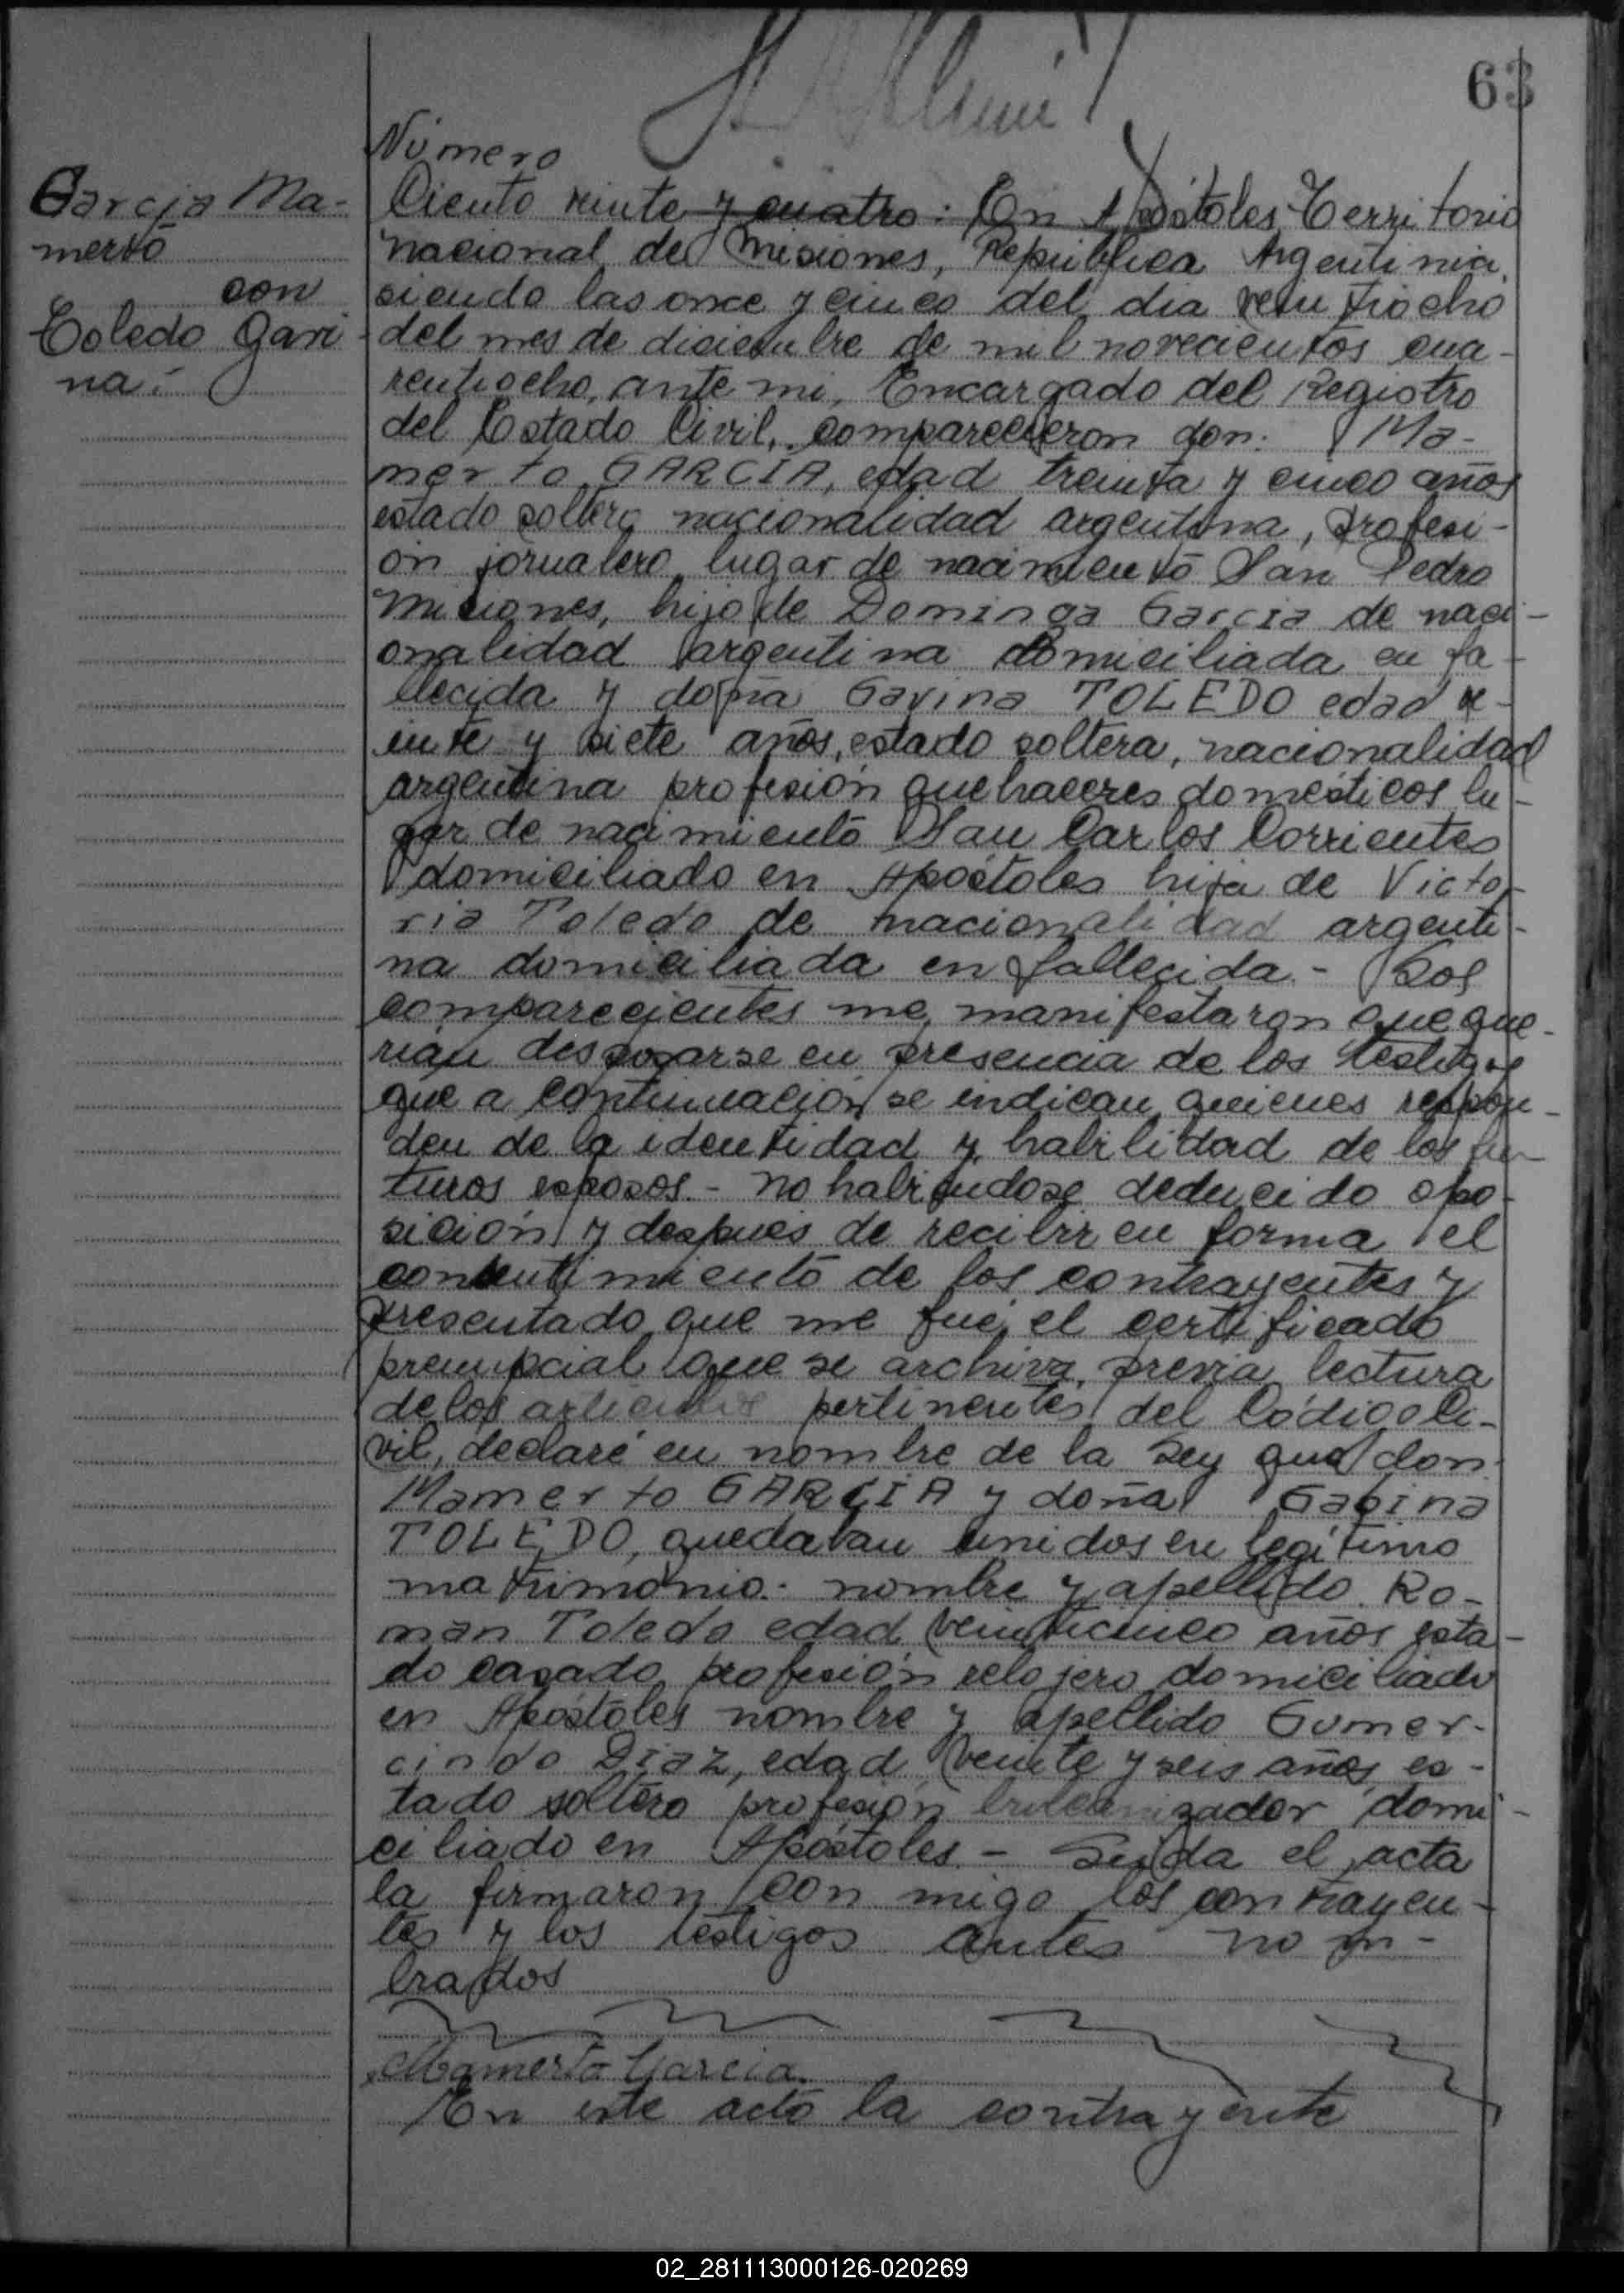 63
Número
Garcia Ma-
merto
con
Toledo Gavi-
na.-
Ciento veinte y cuatro: En Apóstoles Territorio
nacional de Misiones, República Argentina,
siendo las once y cinco del dia veintiocho
del mes de diciembre de mil novecientos cua-
rentiocho, ante mi, Encargado del Registro
del Estado Civil, comparecieron don: Ma-
merto GARCÍA, edad treinta y cinco años
estado soltero nacionalidad argentina, profesi-
ón jornalero lugar de nacimiento San Pedro
Misiones, hijo de Dominga Garcia de naci-
onalidad argentina domiciliada en fa-
llecida y doña Gavina TOLEDO edad ve-
inte y siete años, estado soltera, nacionalidad
argentina profesión quehaceres domésticos lu-
gar de nacimiento San Carlos Corrientes
domiciliado en Apóstoles hija de Victo-
ria Toledo de nacionalidad argenti-
na domiciliada en fallecida.- Los
comparecientes me manifestaron que que-
rian desposarse en presencia de los testigos
que a continuación se indican quienes respon-
den de la identidad y habilidad de los fu-
turos esposos.- No habiendose deducido opo-
sición y después de recibir en forma el
consentimiento de los contrayentes y
presentado que me fué el certificado
prenupcial que se archiva, previa lectura
de los articulos pertinentes del Código Ci-
vil, declaré en nombre de la Ley que don
Mamerto GARCIA y doña Gavina
TOLEDO, quedaban unidos en legítimo
matrimonio.- nombre y apellido Ro-
man Toledo edad veinticinco años esta-
do casado profesión relojero domiciliado
en Apóstoles nombre y apellido Gumer-
cindo Diaz, edad veinte y seis años es-
tado soltero profesión domi-
ciliado en Apóstoles.- Leida el acta
la firmaron con migo los contrayen-
tes y los testigos antes nom-
brados
Mamerto Garcia.
En este acto la contrayente
02_281113000126-020269